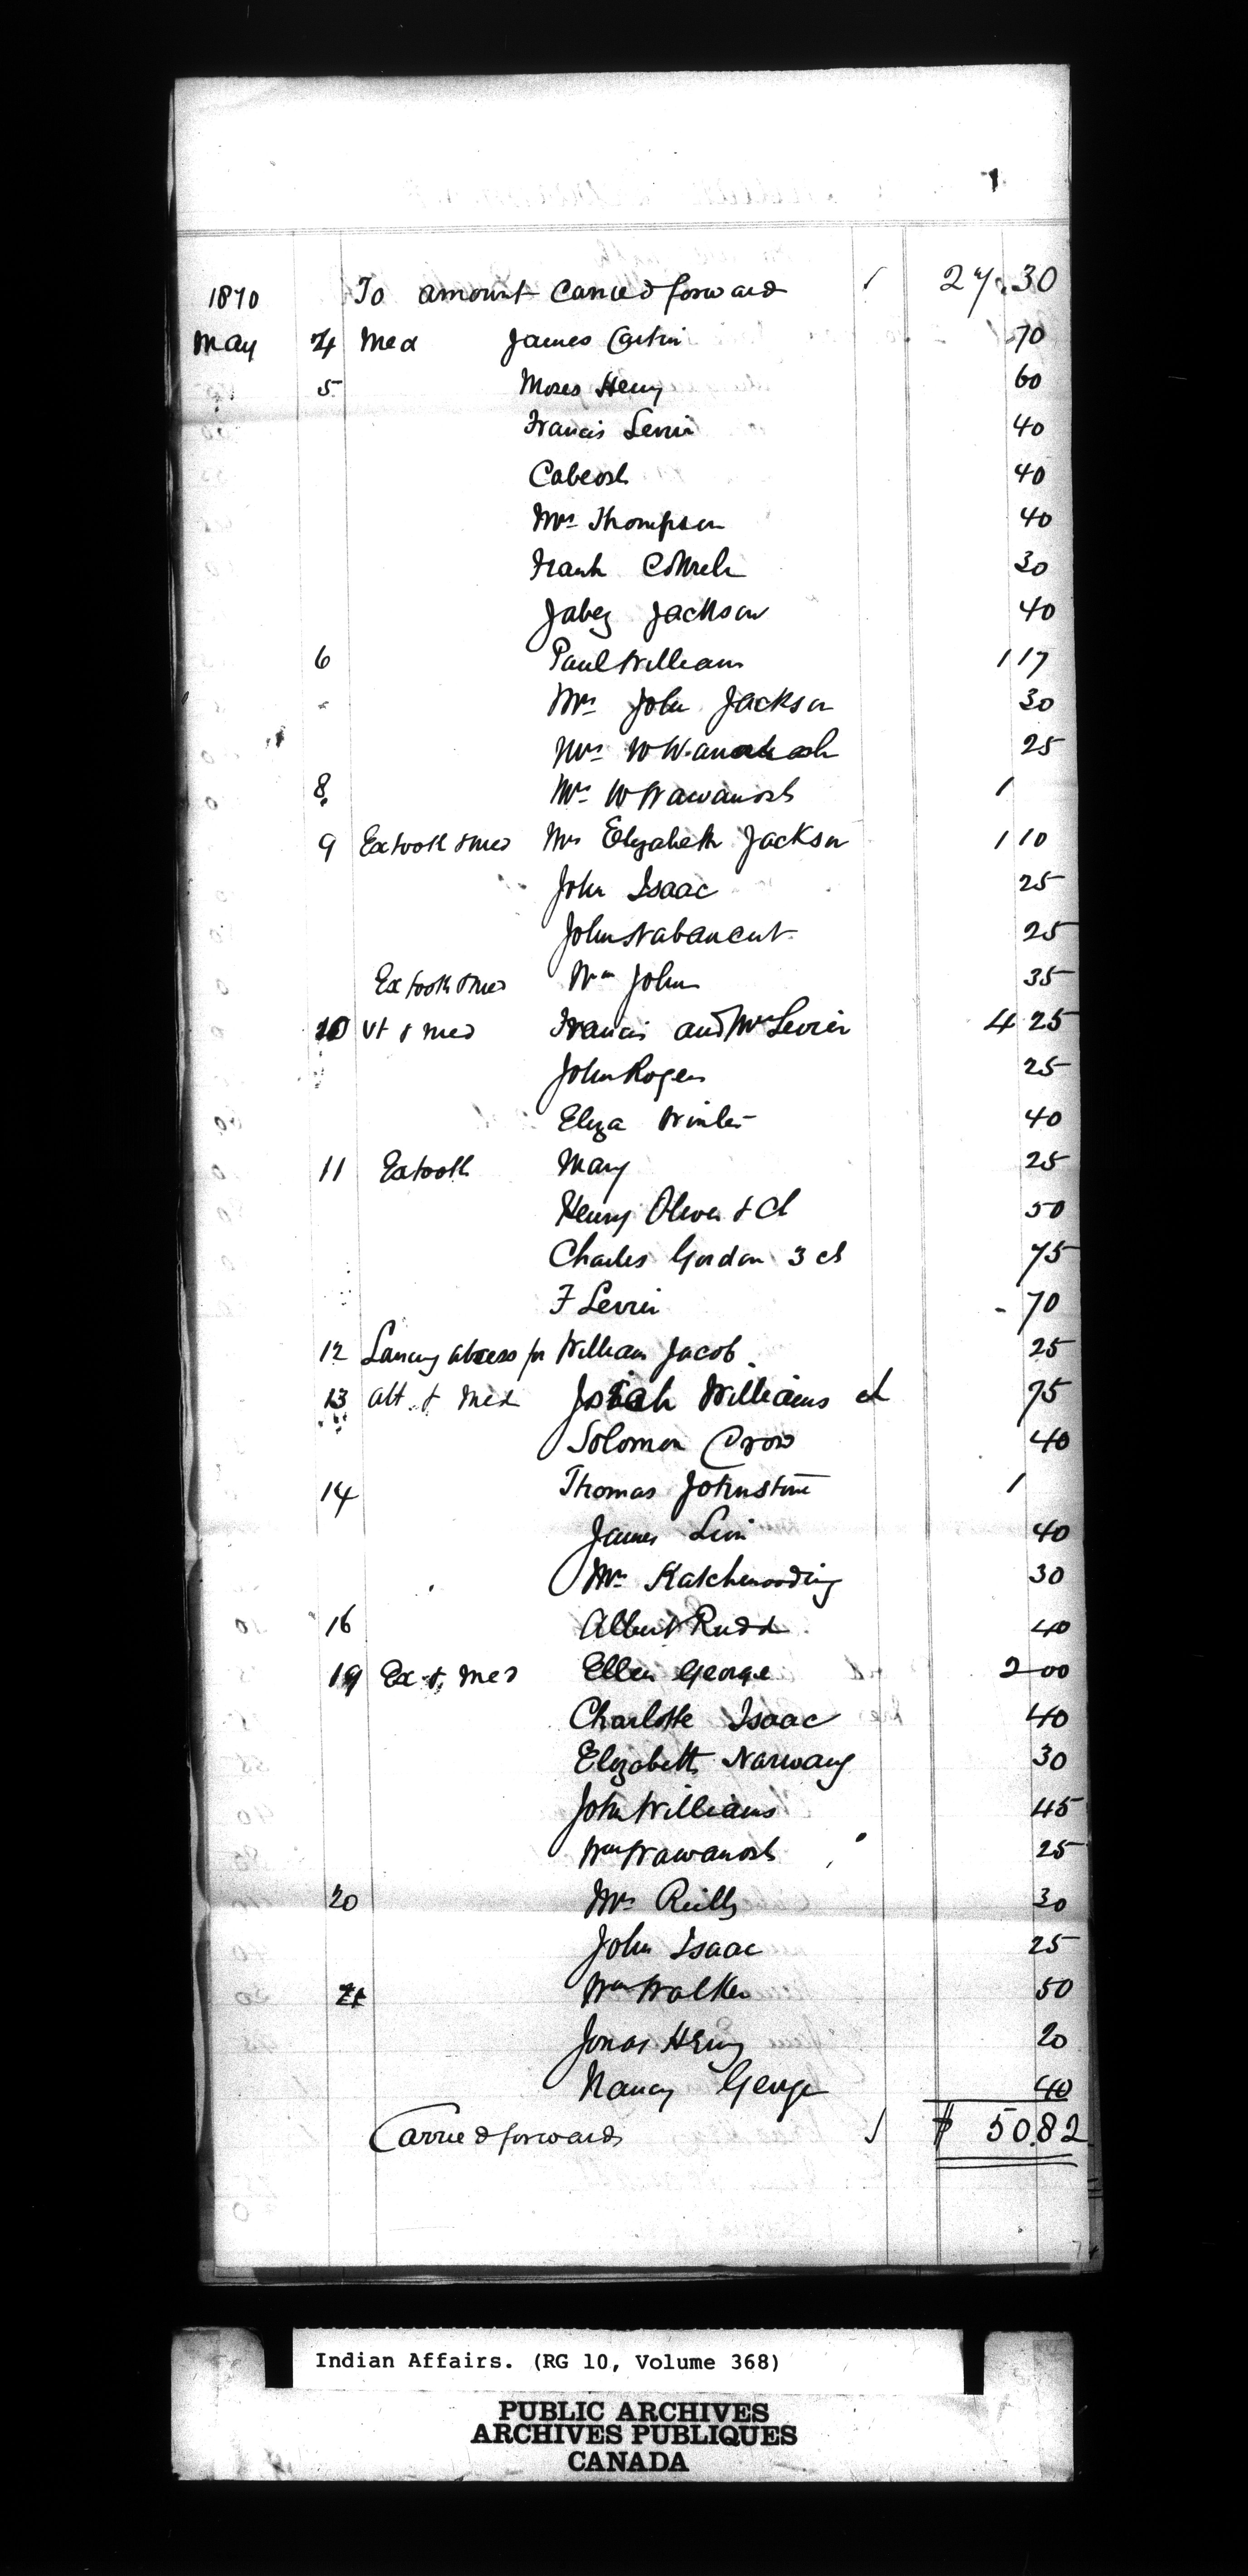 1870 To amount carried forward 27.30
May 4 Med James Cartin 70
5 Moses Henry 60
Francis Levier 40
Cabeosh 40
Mrs Thompson 40
Frank 30
Jabez Jackson 40
6 Paul Williams 1 17
" Mrs John Jackson 30
Mrs W Wawanosh 25
8 Mrs W Wawanosh 1
9 Ex tooth & med Mrs Elizabeth Jackson 1 10
John Isaac 25
John Nabancut 25
Ex tooth & med Wm John 35
10 Vt & med Francis and Mrs Levier 4 25
John Rogers 25
Eliza Winter 40
11 Ex tooth Mary 25
Henry Oliver & Ch 50
Charles Gordon 3 ch 75
F Levier - 70
12 Lancing abcess for William Jacob 25
13 att. & Med Josiah Williams ch 75
Solomon Crow 40
14 Thomas Johnstone 1
James Levi 40
Mrs 30
16 Albert Rudd 40
19 Ex & med Ellen George 2 00
Charlotte Isaac 40
Elizabeth Narwang 30
John Williams 45
Wm Wawanosh 25
20 Mrs Reilly 30
John Isaac 25
21 Wm Walker 50
Jonas Henry 20
Nancy George 40
Carried forward $ 50.82
Indian Affairs. (RG 10, Volume 368)
PUBLIC ARCHIVES
ARCHIVES PUBLIQUES
CANADA